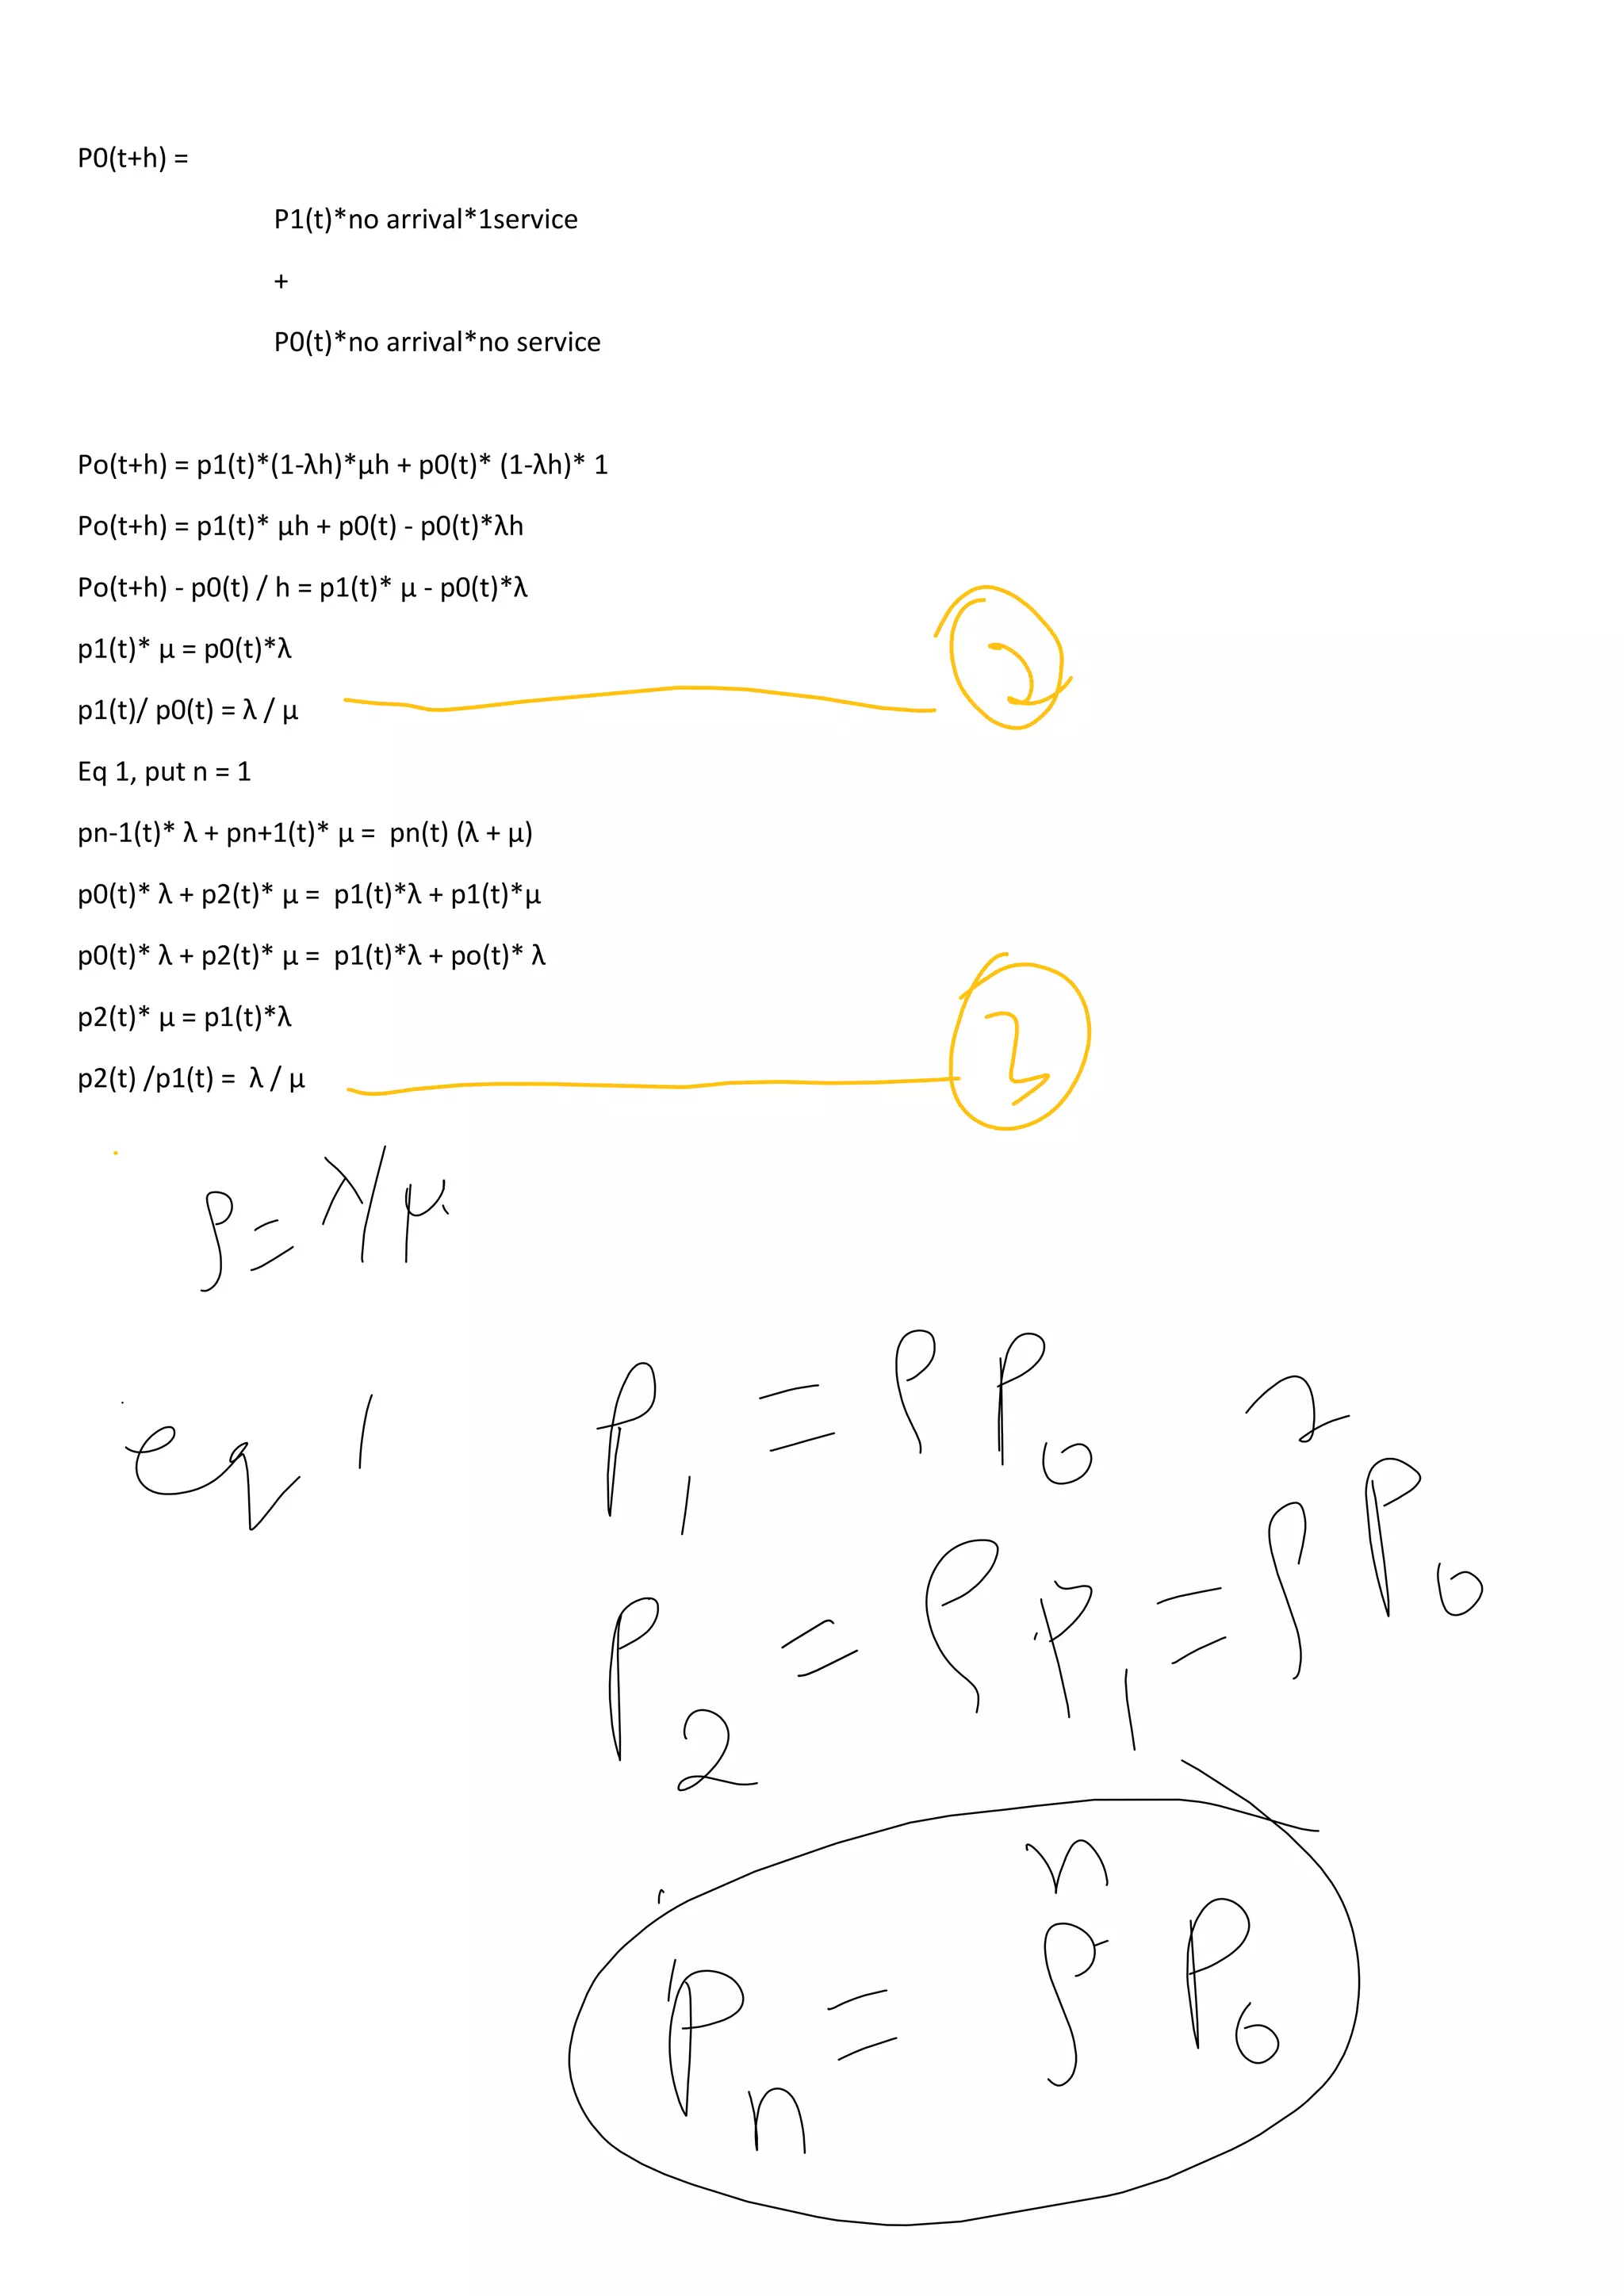 P0(t+h) =
P1(t)*no arrival*1service
+
P0(t)*no arrival*no service
Po(t+h) = p1(t)*(1-λh)*μh + p0(t)* (1-λh)* 1
Po(t+h) = p1(t)* μh + p0(t) - p0(t)*λh
Po(t+h) - p0(t) / h = p1(t)* μ - p0(t)*λ
p1(t)* μ = p0(t)*λ
p1(t)/ p0(t) = λ / μ 2
Eq 1, put n = 1
pn-1(t)* λ + pn+1(t)* μ = pn(t) (λ + μ)
p0(t)* λ + p2(t)* μ = p1(t)*λ + p1(t)*μ
p0(t)* λ + p2(t)* μ = p1(t)*λ + po(t)* λ
p2(t)* μ = p1(t)*λ
p2(t) /p1(t) = λ / μ 3
ρ = λ/μ
eq 1 P₁ = ρ P₀
P₂ = ρ P₁ = ρ² P₀
Pₙ = ρⁿ P₀